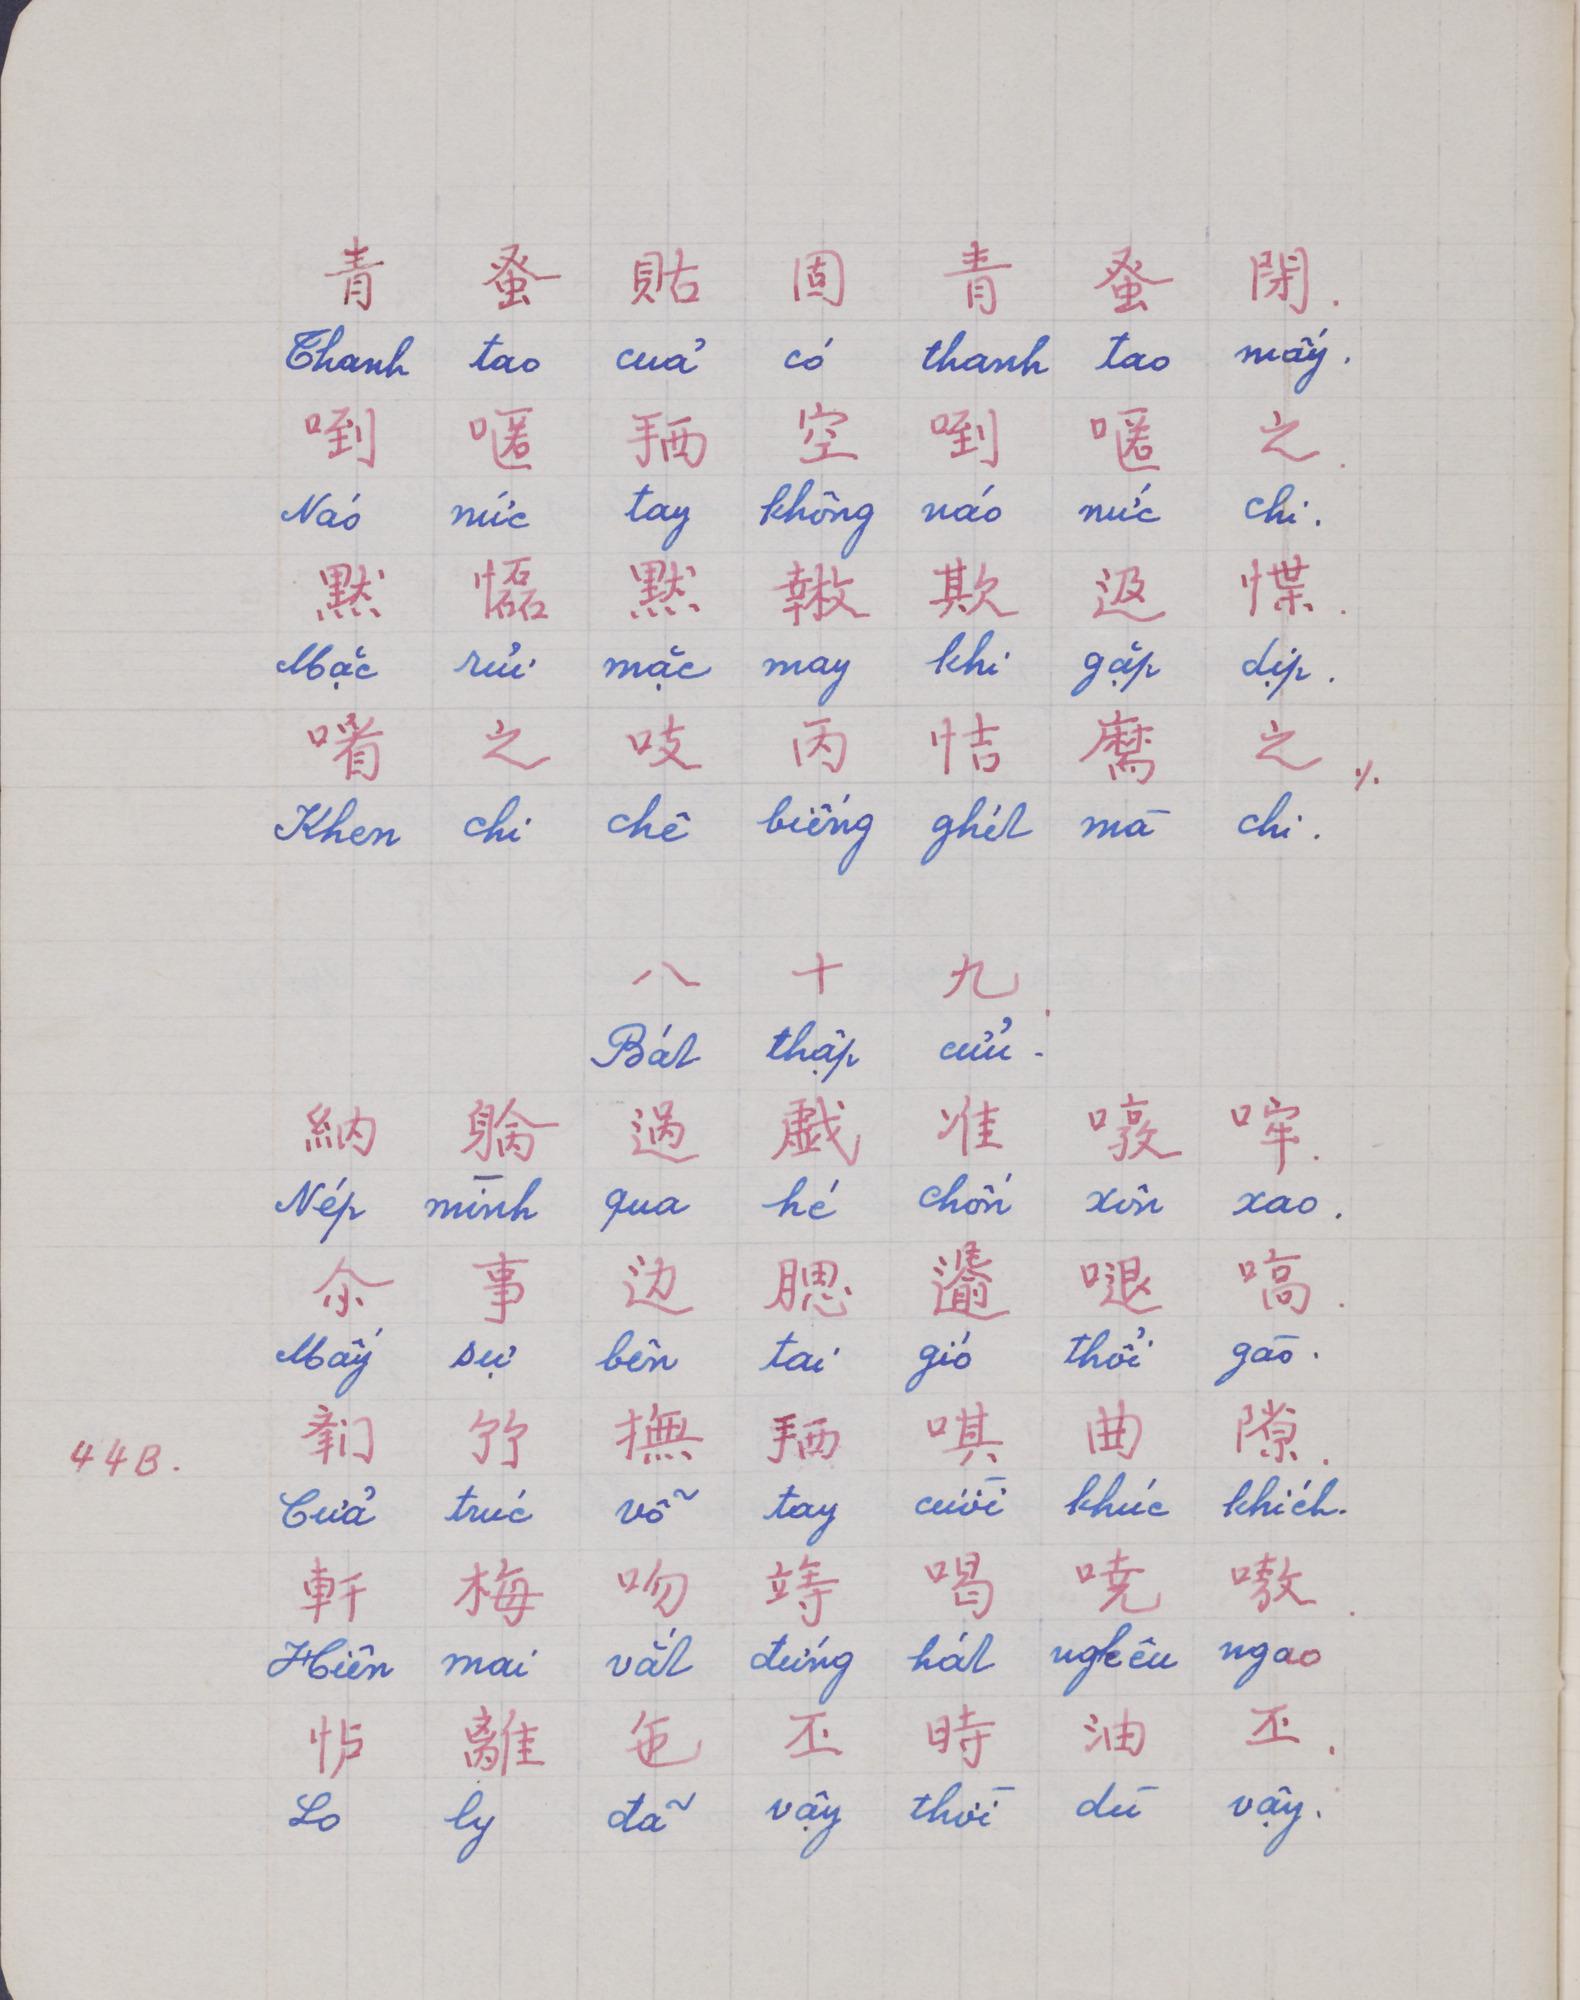 青 蚤 貼 固 青 蚤 閉.
Thanh tao cuả có thanh tao mấy.
唨 㗲 𢬣 空 唨 㗲 之.
Náo nức tay không náo nức chi.
默 𢤡 默 𢆧 欺 𨒺 惵.
Mặc rủi mặc may khi gặp dịp.
𠸦 之 吱 丙 恄 麿 之 ٪
Khen chi chê biếng ghét mà chi.
八 十 九.
Bát thập cửu.
納 躺 過 戱 准 㗥 哰.
Nép mình qua hé chốn xôn xao.
尒 事 边 腮 𩙌 㗧 嗃.
Mấy sự bên tai gió thổi gào.
44B.
𨷯 竹 撫 𢬣 唭 曲 隙.
Cưả trúc vỗ tay cười khúc khích.
軒 梅 吻 䇐 喝 哓 嗷.
Hiên mai vắt đứng hát nghêu ngao
怗 離 㐌 丕 時 油 丕.
Lo ly đã vậy thời dù vậy.